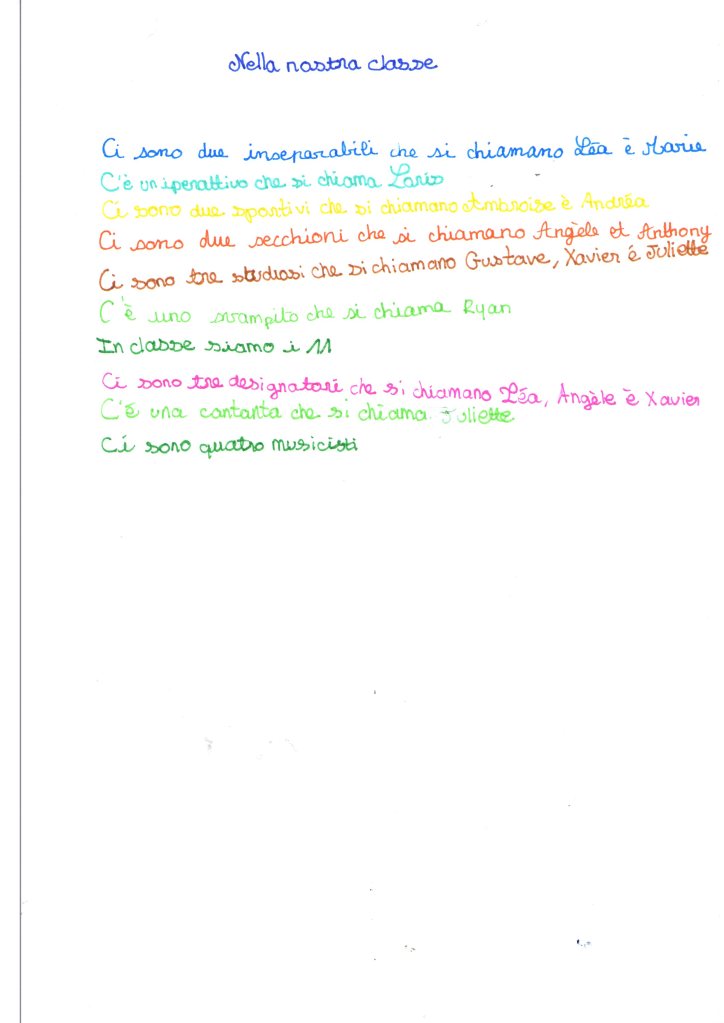 Nella nostra classe
Ci sono due inseparabili che si chiamano Léa è Marie
C'è un iperattivo che si chiama Loris
Ci sono due sportivi che si chiamano Ambroise è Andréa
Ci sono due secchioni che si chiamano Angèle et Anthony
Ci sono tre studiosi che si chiamano Gustave, Xavier é Juliette
C'è uno svampito che si chiama Ryan
In classe siamo i 11
Ci sono tre designatori che si chiamano Léa, Angèle è Xavier
C'è una cantanta che si chiama Juliette
Ci sono quatro musicisti